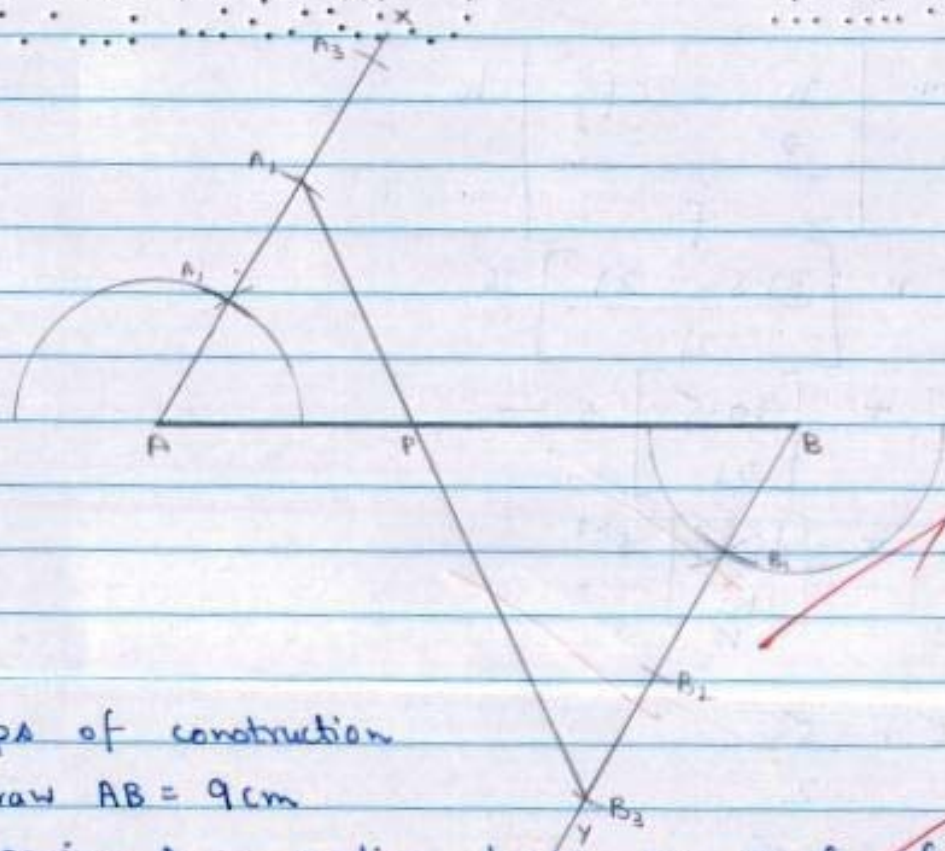 X
A3
A2
A1
A
P
B
B1
B2
B3
Y
of construction
AB = 9cm